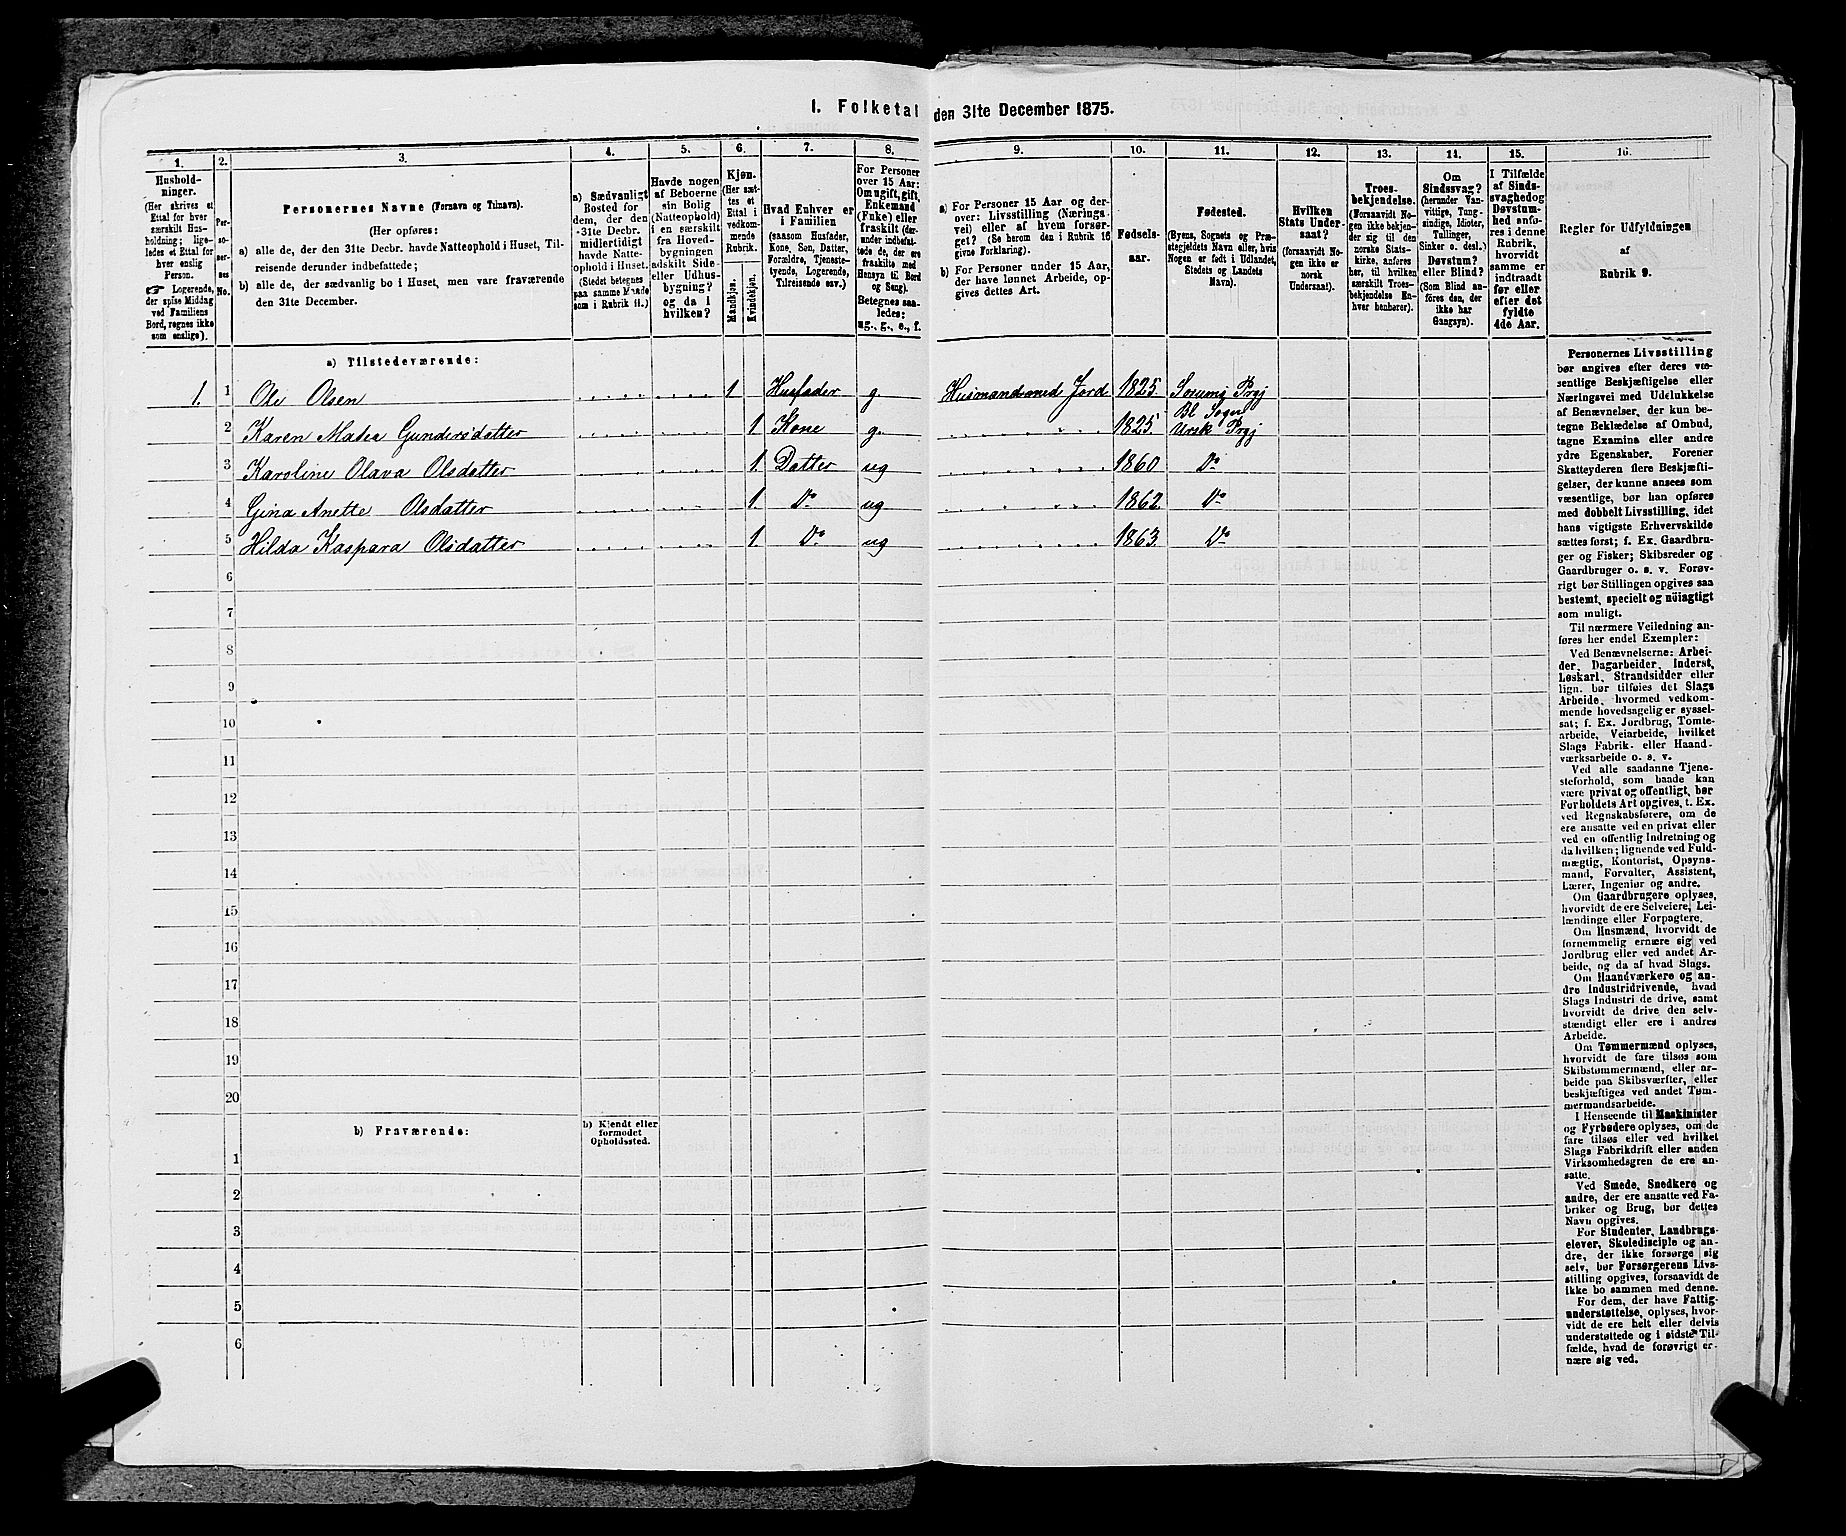 1. Folketal den 31te December 1875.
1. 2. 3. 4. 5. 6. 7. 8. 9. 10. 11. 12. 13. 14. 15. 16.
Hushold-
ninger.
(Her skrives et
Ettal for hver
særskilt Hus-
holdning; lige-
ledes et Ettal for
hver enslig
Person.
☞ Logerende,
der spise Middag
ved Familiens
Bord, regnes ikke
som enslige).
Per-
so-
ner-
nes
No.
Personernes Navne (Fornavn og Tilnavn).
(Her opføres:
a) alle de, der den 31te Decbr. havde Natteophold i Huset, Til-
reisende derunder indbefattede;
b) alle de, der sædvanlig bo i Huset, men vare fraværende
den 31te December.
a) Sædvanligt
Bosted for
dem, der den
31te Decbr.
midlertidigt
havde Natte-
ophold i Huset.
(Stedet betegnes
paa samme Maade
som i Rubrik 11.)
Havde nogen
af Beboerne
sin Bolig
(Natteophold)
i en særskilt
fra Hoved-
bygningen
adskilt Side-
eller Udhus-
bygning?
og da i
hvilken?
Kjøn.
(Her sæt-
tes et
Ettal i
vedkom-
mende
Rubrik.
Mandkjøn.
Kvindekjøn.
Hvad Enhver er
i Familien
(saasom Husfader,
Kone, Søn, Datter,
Forældre, Tjeneste-
tyende, Logerende,
Tilreisende osv.)
For Personer
over 15 Aar:
Om ugift, gift,
Enkemand
(Enke) eller
fraskilt (der-
under indbefat-
tede de, der ere
fraskilte med
Hensyn til Bord
og Seng).
Betegnes saa-
ledes:
ug., g., e., f.
a) For Personer 15 Aar og der-
over: Livsstilling (Nærings-
vei) eller af hvem forsør-
get? (Se herom den i Rubrik 16
givne Forklaring).
b) For Personer under 15 Aar,
der have lønnet Arbeide, op-
gives dettes Art.
Fødsels-
aar.
Fødested.
(Byens, Sognets og Præ-
stegjeldets Navn eller, hvis
Nogen er født i Udlandet,
Stedets og Landets
Navn).
Hvilken
Stats Under-
saat?
(forsaavidt No-
gen ikke er
norsk
Undersaat).
Troes-
bekjendelse.
(Forsaavidt No-
gen ikke bekjen-
der sig til den
norske Stats-
kirke, anføres
her, til hvilken
særskilt Troes-
bekjendelse En-
hver henhører).
Om
Sindssvag?
(herunder Van-
vittige, Tung-
sindige, Idioter,
Tullinger,
Sinker o. desl.)
Døvstum?
eller Blind?
(Som Blind an-
føres den, der
ikke har
Gangsyn).
I Tilfælde
af Sinds-
svaghed og
Døvstum-
hed anfø-
res i denne
Rubrik,
hvorvidt
samme er
indtraadt
før eller
efter det
fyldte
4de Aar.
Regler for Udfyldningen
af
Rubrik 9.
a) Tilstedeværende:
1. 1 Ole Olsen 1 Husfader g. Husmand med Jord 1825. Sørums Prgj
Bl Sogn
2 Karen Mathea Gundersdatter 1. Kone g. 1825. Ursk Prgj
3 Karoline Olava Olsdatter 1. Datter ug 1860 Do
4 Gina Anette Olsdatter 1. Do ug 1862. Do
5 Hilda Kaspara Olsdatter 1. Do ug 1863. Do
6
7
8
9
10
11
12
13
14
15
16
17
18
19
20
b) Fraværende:
b) Kjendt eller
formodet
Opholdssted.
1
2
3
4
5
6
Personernes Livsstilling
bør angives efter deres væ-
sentlige Beskjæftigelse eller
Næringsvei med Udelukkelse
af Benævnelser, der kun be-
tegne Beklædelse af Ombud,
tagne Examina eller andre
ydre Egenskaber. Forener
Skatteyderen flere Beskjæfti-
gelser, der kunne ansees som
væsentlige, bør han opføres
med dobbelt Livsstilling, idet
hans vigtigste Erhvervskilde
sættes først; f. Ex. Gaardbru-
ger og Fisker; Skibsreder og
Gaardbruger o. s. v. Forøv-
rigt bør Stillingen opgives saa
bestemt, specielt og nöiagtigt
som muligt.
Til nærmere Veiledning an-
føres her endel Exempler:
Ved Benævnelserne: Arbei-
der, Dagarbeider, Inderst,
Løskarl, Strandsidder eller
lign. bør tilføies det Slags
Arbeide, hvormed vedkom-
mende hovedsagelig er syssel-
sat; f. Ex. Jordbrug, Tomte-
arbeide, Veiarbeide, hvilket
Slags Fabrik- eller Haand-
værksarbeide o. s. v.
Ved alle saadanne Tjene-
steforhold, som baade kan
være privat og offentligt, bør
Forholdets Art opgives, t. Ex.
ved Regnskabsførere, om de
ere ansatte ved en privat eller
ved en offentlig Indretning og
da hvilken; lignende ved Fuld-
mægtig, Kontorist, Opsyns-
mand, Forvalter, Assistent,
Lærer, Ingeniør og andre.
Om Gaardbrugere oplyses,
hvorvidt de ere Selveiere, Lei-
lændinge eller Forpagtere.
Om Husmænd, hvorvidt de
fornemmelig ernære sig ved
Jordbrug eller ved andet Ar-
beide, og da af hvad Slags.
Om Haandværkere og an-
dre Industridrivende, hvad
Slags Industri de drive, samt
hvorvidt de drive den selv-
stændigt eller ere i andres
Arbeide.
Om Tømmermænd oplyses,
hvorvidt de fare tilsøs som
Skibstømmermænd, eller ar-
beide paa Skibsværfter, eller
beskjæftiges ved andet Tøm-
mermandsarbeide.
I Henseende til Maskinister
og Fyrbødere oplyses, om de
fare tilsøs eller ved hvilket
Slags Fabrikdrift eller anden
Virksomhedsgren de ere an-
satte.
Ved Smede, Snedkere og
andre, der ere ansatte ved Fa-
briker og Brug, bør dettes
Navn opgives.
For Studenter, Landbrugs-
elever, Skoledisciple og an-
dre, der ikke forsørge sig
selv, bør Forsørgerens Livs-
stilling opgives, forsaavidt de
ikke bo sammen med denne.
For dem, der have Fattig-
understøttelse, oplyses, hvor-
vidt de ere helt eller delvis
understøttede og i sidste Til-
fælde, hvad de forøvrigt er-
nære sig ved.